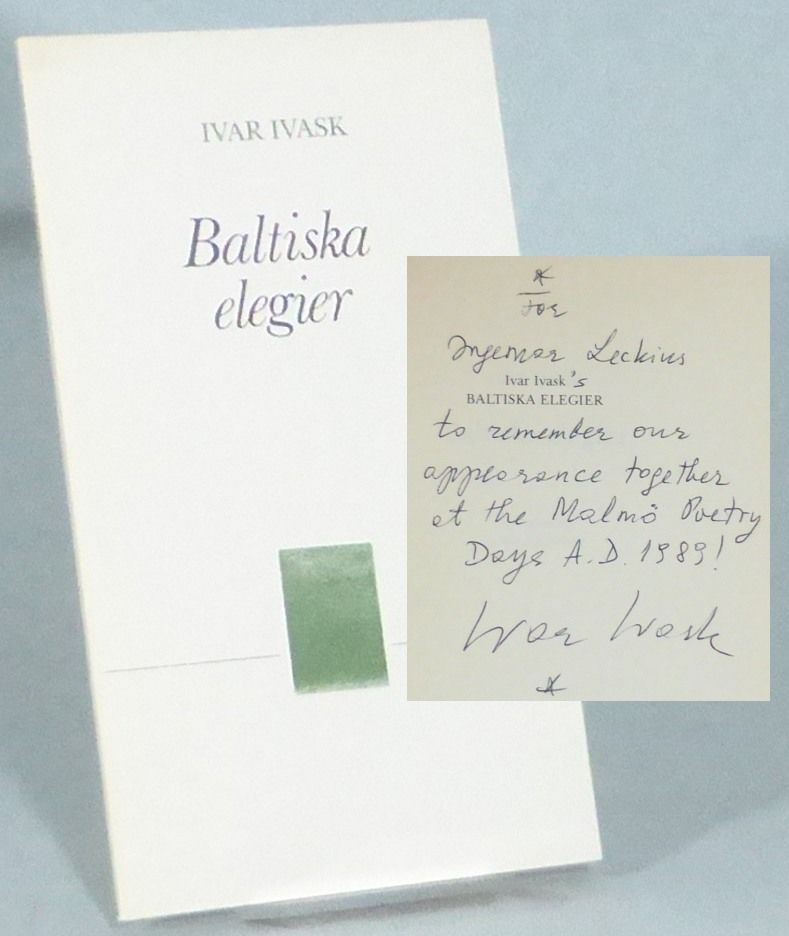 IVAR IVASK
Baltiska
elegier
for
Ingemar Leckius
Ivar Ivask's
BALTISKA ELEGIER
to remember our
appearance together
at the Malmö Poetry
Days A.D. 1989!
Ivar Ivask